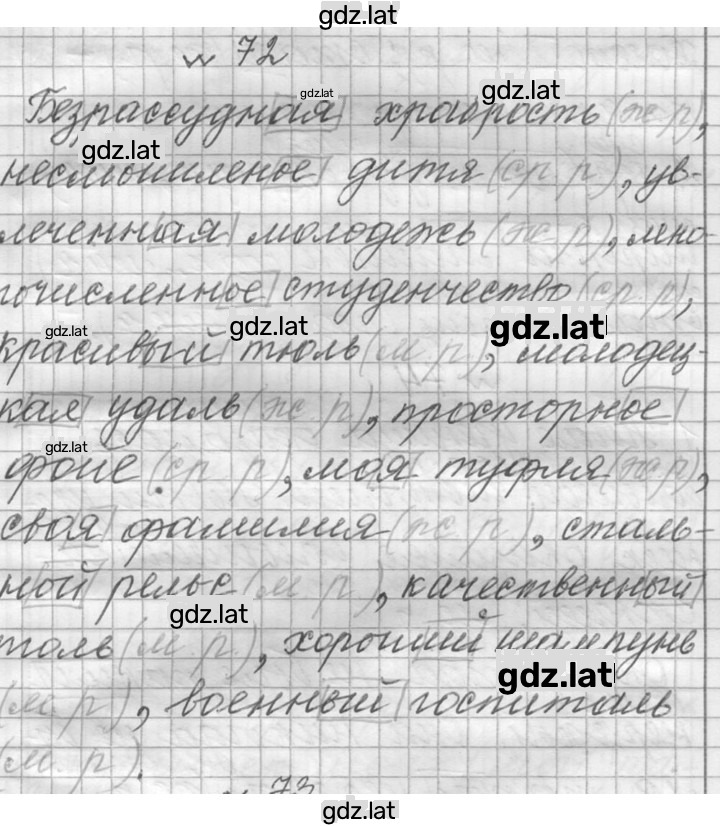 gdz.lat
№ 72
gdz.lat
Безрассудная храбрость (ж. р.),
gdz.lat
gdz.lat
несмышленое дитя (ср. р.), ув-
леченная молодежь (ж. р.), мно-
гочисленное студенчество (ср. р.),
gdz.lat gdz.lat gdz.lat
красивый тюль (м. р.), молодец-
кая удаль (ж. р.), просторное
gdz.lat
фойе (ср. р.), моя туфля (ж. р.),
своя фамилия (ж. р.), сталь-
ной рельс (м. р.), качественный
gdz.lat
толь (м. р.), хороший шампунь
gdz.lat
(м. р.), военный госпиталь
(м. р.).
№ 73
gdz.lat